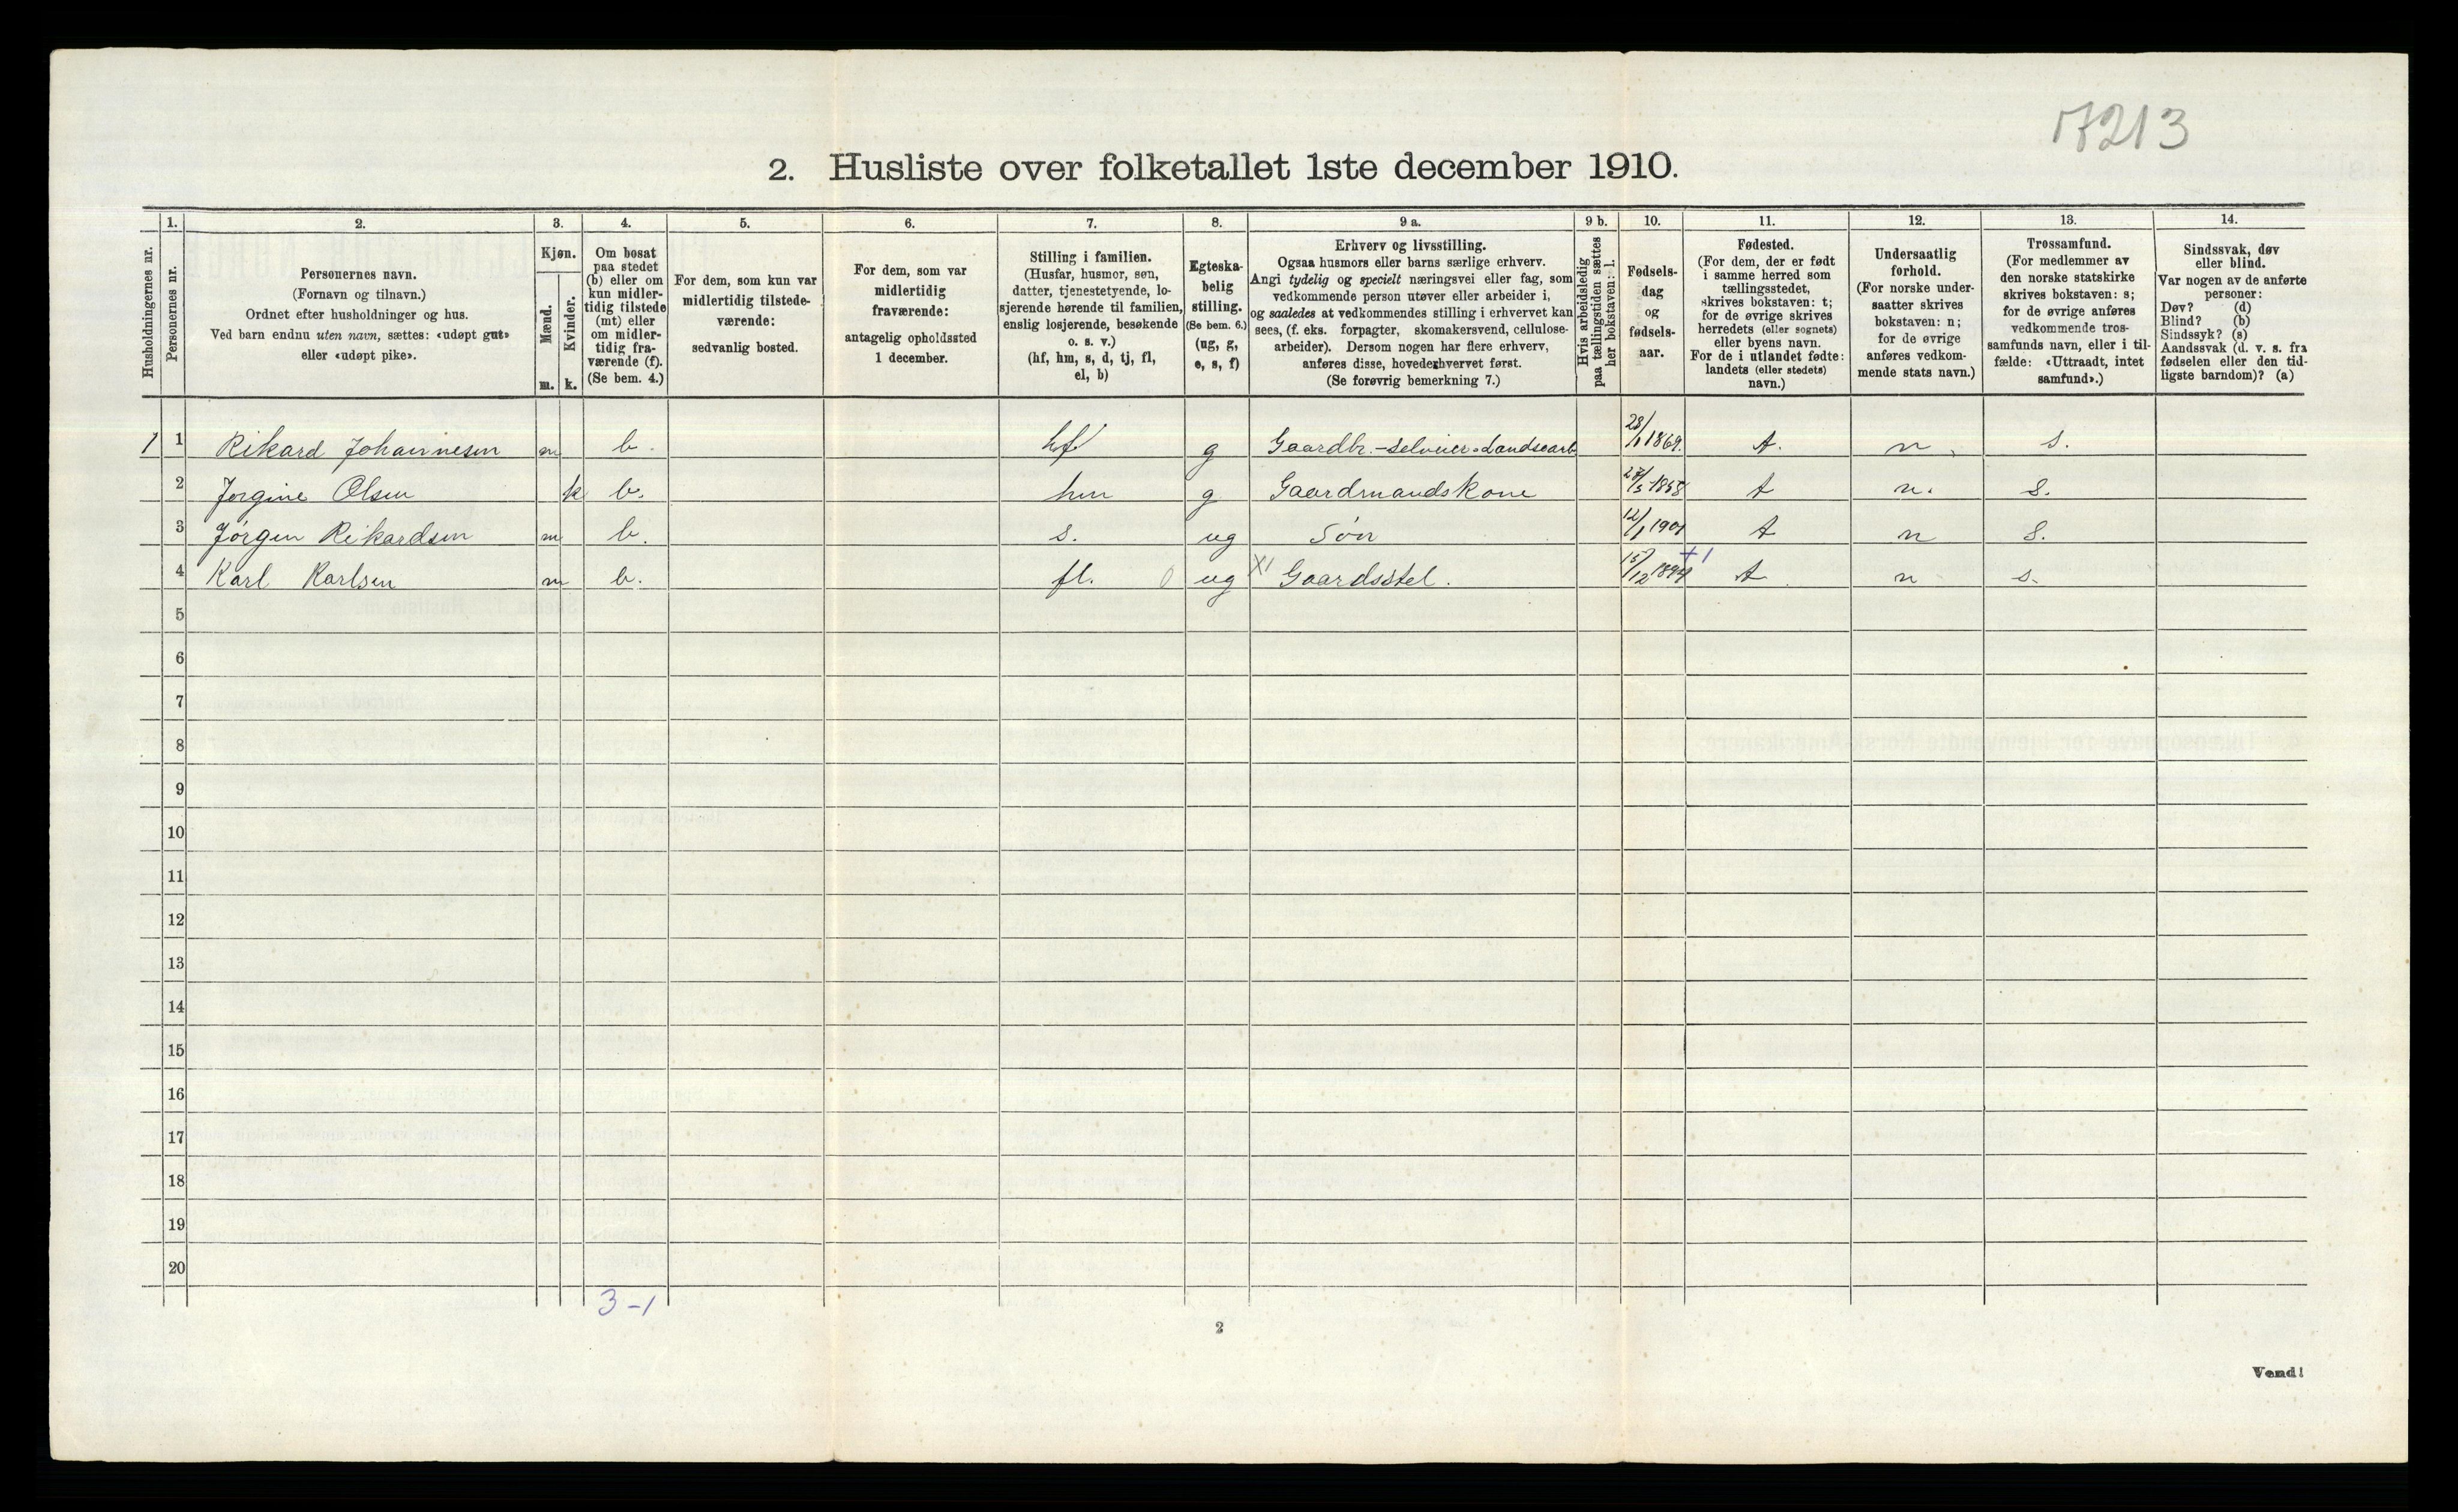 17213
2. Husliste over folketallet 1ste december 1910.
Husholdningernes nr.
1.
Personernes nr.
2.
Personernes navn.
(Fornavn og tilnavn.)
Ordnet efter husholdninger og hus.
Ved barn endnu uten navn, sættes: «udøpt gut»
eller «udøpt pike».
3.
Kjøn.
Mænd.
m.
Kvinder.
k.
4.
Om bosat
paa stedet
(b) eller om
kun midler-
tidig tilstede
(mt) eller
om midler-
tidig fra-
værende (f).
(Se bem. 4.)
5.
For dem, som kun var
midlertidig tilstede-
værende:
sedvanlig bosted.
6.
For dem, som var
midlertidig
fraværende:
antagelig opholdssted
1 december.
7.
Stilling i familien.
(Husfar, husmor, søn,
datter, tjenestetyende, lo-
sjerende hørende til familien,
enslig losjerende, besøkende
o. s. v.)
(hf, hm, s, d, tj, fl,
el, b)
8.
Egteska-
belig
stilling.
(Se bem. 6.)
(ug, g,
e, s, f)
9 a.
Erhverv og livsstilling.
Ogsaa husmors eller barns særlige erhverv.
Angi tydelig og specielt næringsvei eller fag, som
vedkommende person utøver eller arbeider i,
og saaledes at vedkommendes stilling i erhvervet kan
sees, (f. eks. forpagter, skomakersvend, cellulose-
arbeider). Dersom nogen har flere erhverv,
anføres disse, hovederhvervet først.
(Se forøvrig bemerkning 7.)
9 b.
Hvis arbeidsledig
paa tællingstiden sættes
her bokstaven: l.
10.
Fødsels-
dag
og
fødsels-
aar.
11.
Fødested.
(For dem, der er født
i samme herred som
tællingsstedet,
skrives bokstaven: t;
for de øvrige skrives
herredets (eller sognets)
eller byens navn.
For de i utlandet fødte:
landets (eller stedets)
navn.)
12.
Undersaatlig
forhold.
(For norske under-
saatter skrives
bokstaven: n;
for de øvrige
anføres vedkom-
mende stats navn.)
13.
Trossamfund.
(For medlemmer av
den norske statskirke
skrives bokstaven: s;
for de øvrige anføres
vedkommende tros-
samfunds navn, eller i til-
fælde: «Uttraadt, intet
samfund».)
14.
Sindssvak, døv
eller blind.
Var nogen av de anførte
personer:
Døv? (d)
Blind? (b)
Sindssyk? (s)
Aandssvak (d. v. s. fra
fødselen eller den tid-
ligste barndom)? (a)
1 1 Rikard Johannesen m b. hf g Gaardbr.-selveier. Landsearb 28/1 1869. t. n. s.
2 Jorgine Olsen k b. hm g Gaardmandskone t n. s.
3 Jørgen Rikardsen m b. s. ug Søn 12/1 1901 t n s.
4 Karl Karlsen m b. fl. 0 ug XI Gaardsstel. 15/12 +1 t n s.
5
6
7
8
9
10
11
12
13
14
15
16
17
18
19
20
3-1
2
Vend!